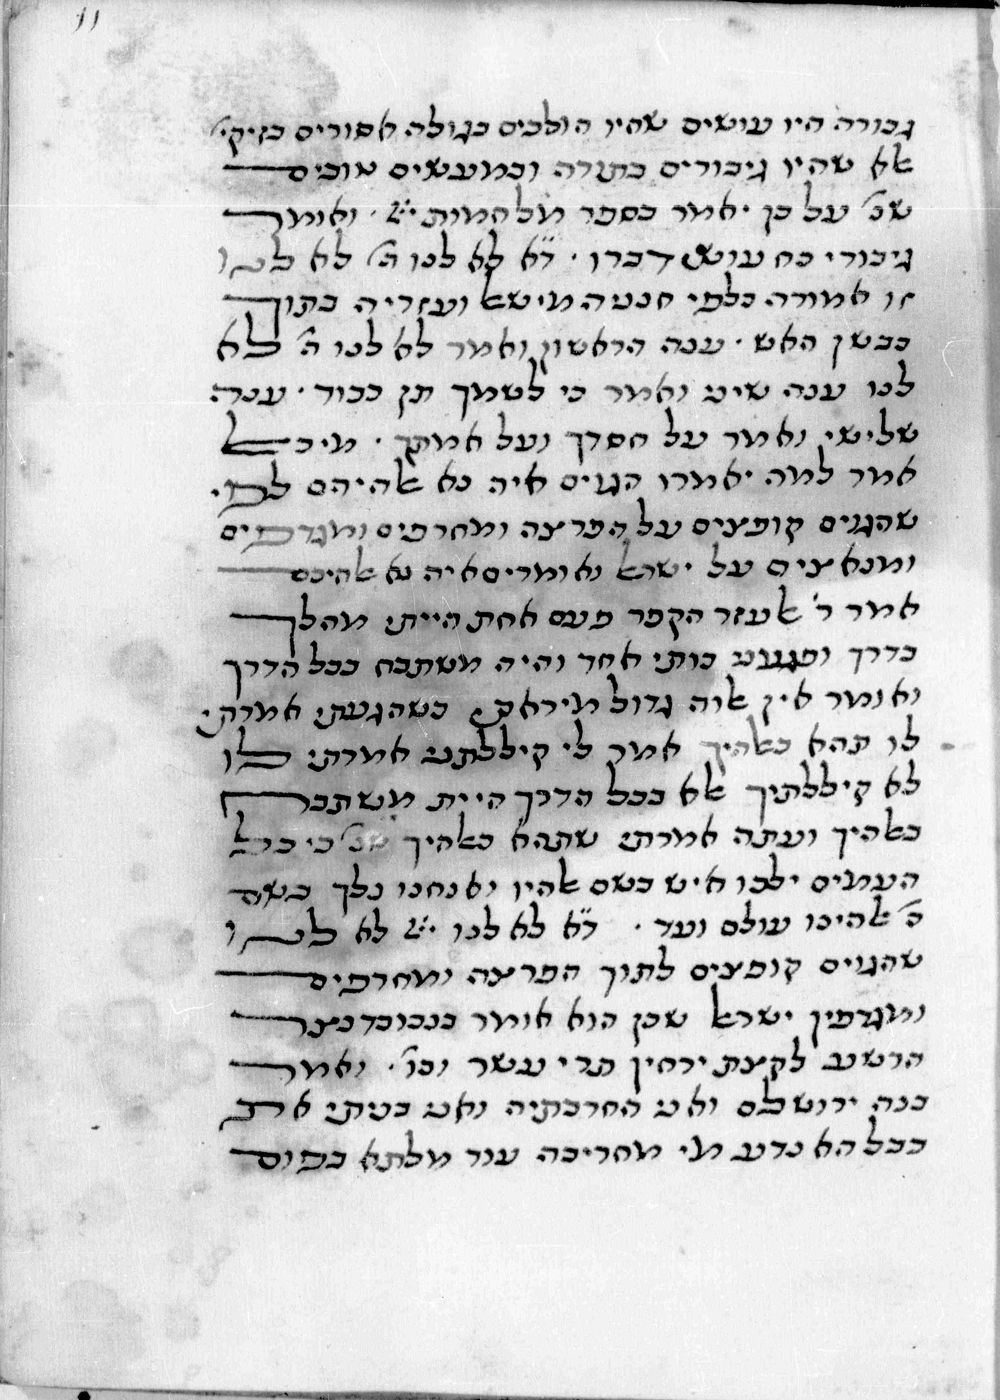 11
גבורה היו עושים שהיו הולכים בגולה אסורים בזיקי׳
אלא שהיו גיבורים בתורה ובמעשים טובים
שנ׳ על כן יאמר בספר מלחמות י׳י׳ · ואומר
גיבורי כח עושי דברו · ד״א לא לנו ה׳ לא לנו
זו אמורה כלפי חנניה מישאל ועזריה בתוך
כבשן האש · ענה הראשון ואמר לא לנו ה׳ לא
לנו ענה שיני ואמר כי לשמך תן כבוד · ענה
שלישי ואמר על חסדך ועל אמתך ·
אמר למה יאמרו הגוים איה נא אלהיהם
שהגוים קופצים על הפרצה ומחרפים ומגדפים
ומנאצים על ישראל ואומרים איה נא אלהיכם
אמר ר׳ אלעזר הקפר פעם אחת הייתי מהלך
בדרך ופגעני כותי אחד והיה משתבח בכל הדרך
ואומר אין אלוה גדול כשהגעתי אמרתי
לו תהא כאלהיך אמר לי קיללתני אמרתי לו
לא קיללתיך אלא בכל הדרך היית משתבח
באלהיך ועתה אמרתי שתהא כאלהיך שנ׳ כי כל
העמים ילכו איש בשם אלהיו ואנחנו נלך בשם
ה׳ אלהינו עולם ועד · ד״א לא לנו י׳י׳ לא לנו
שהגוים קופצים לתוך הפרצה ומחרפים
ומגדפין ישראל שכן הוא אומר בנבוכדנצר
הרשע לקצת ירחין תרי עשר וכו׳ · ואמר
בנה ירושלם ואני החרבתיה ואני בניתי את
בבל הא נדע מי מחריבה עוד מלתא בפום